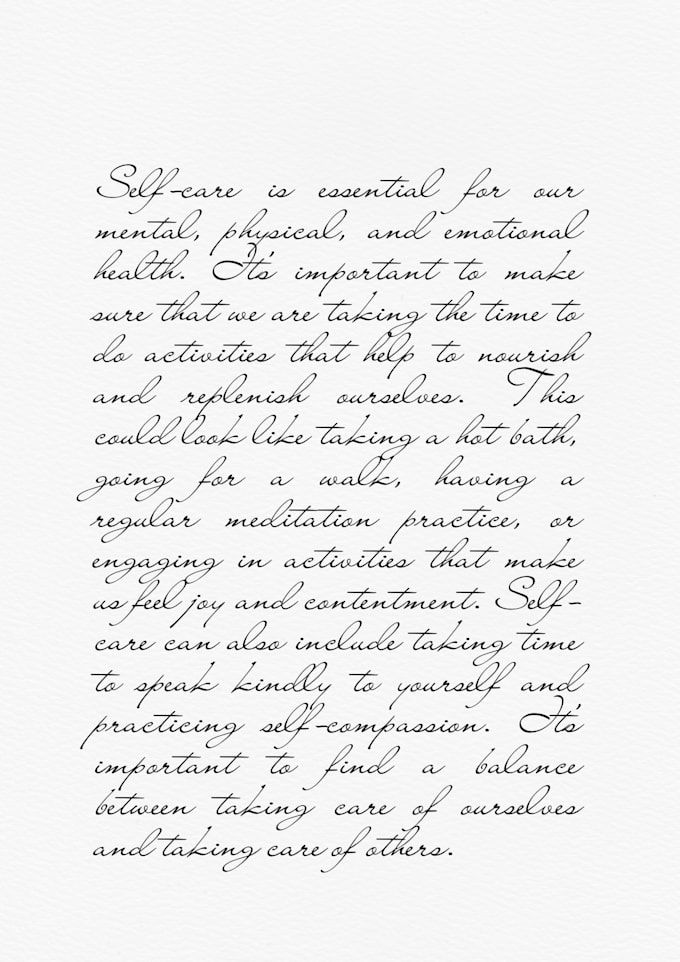 Self-care is essential for our
mental, physical, and emotional
health. It's important to make
sure that we are taking the time to
do activities that help to nourish
and replenish ourselves. This
could look like taking a hot bath,
going for a walk, having a
regular meditation practice, or
engaging in activities that make
us feel joy and contentment. Self-
care can also include taking time
to speak kindly to yourself and
practicing self-compassion. It's
important to find a balance
between taking care of ourselves
and taking care of others.